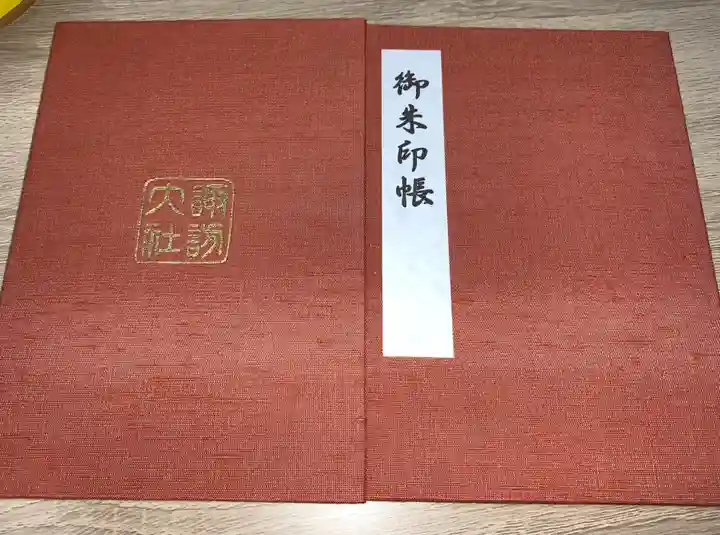 御朱印帳
諏訪
大社